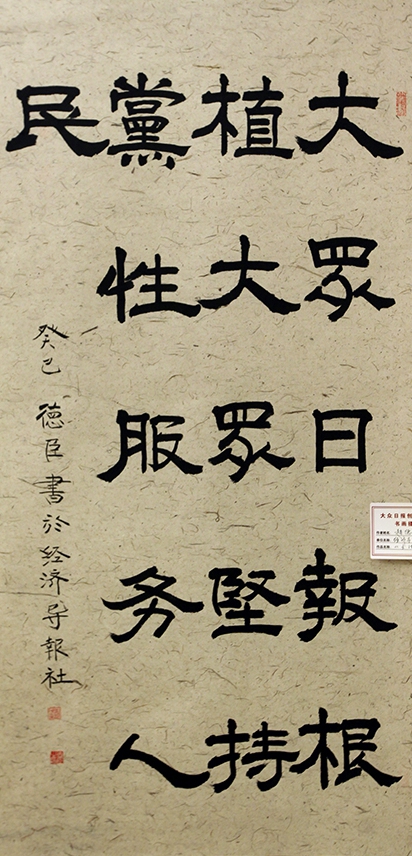 大眾日報根
植大眾堅持
黨性服务人
民
癸巳 德臣書於经济导報社
大众日报创
书画
作者姓名
单位名称
作品名称